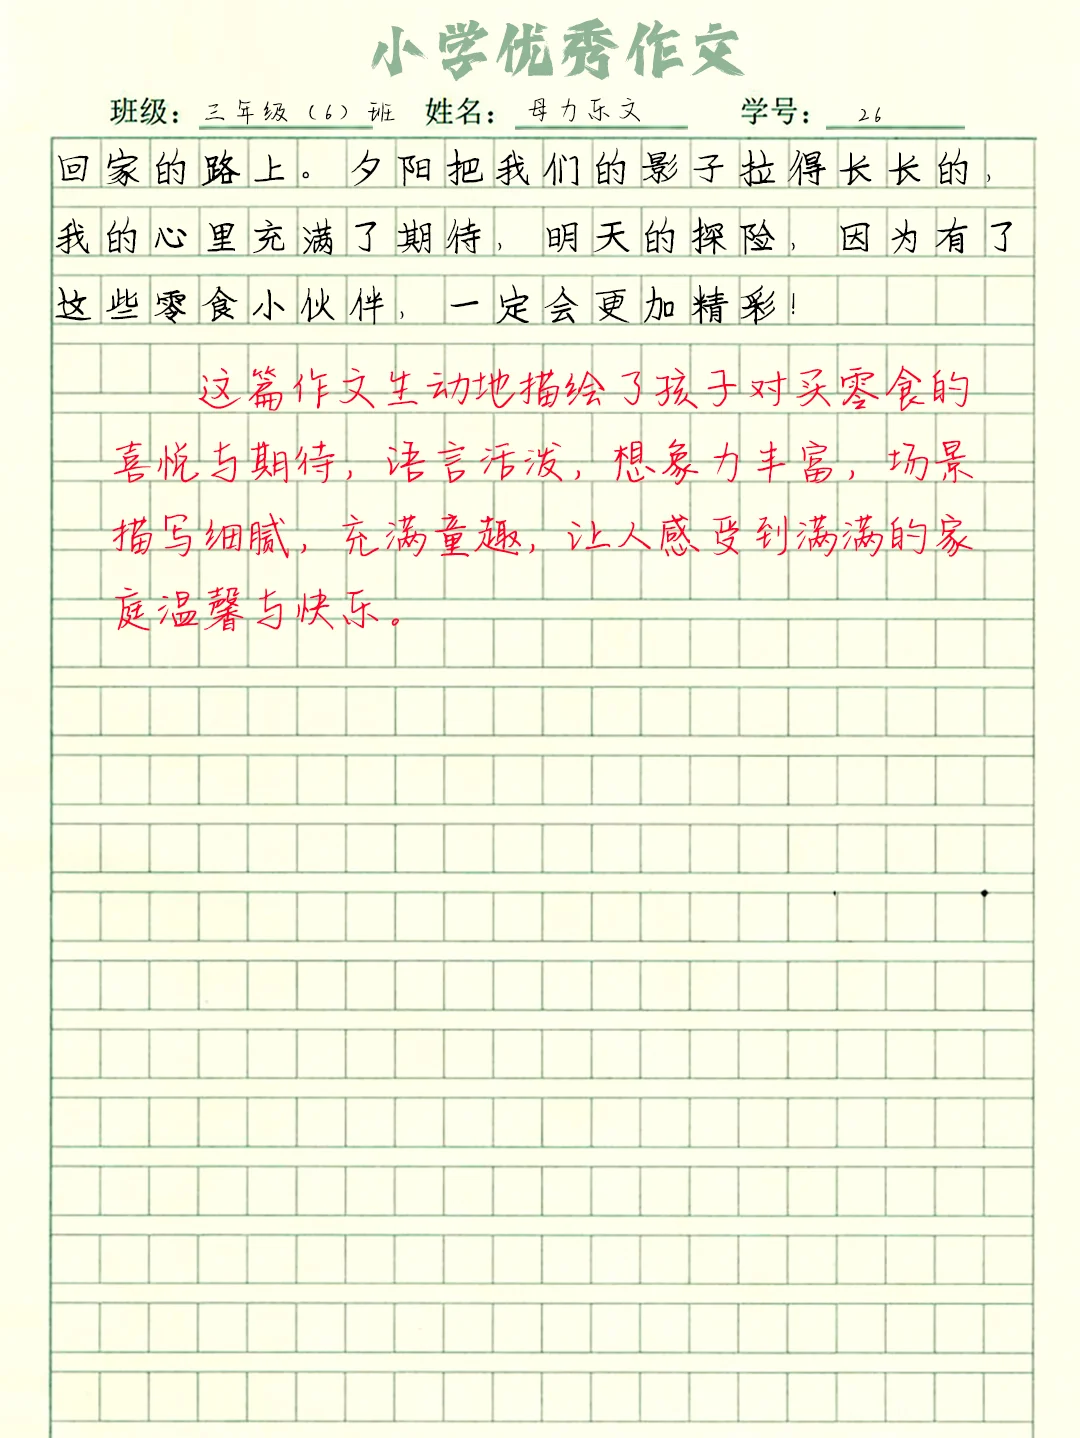 小学优秀作文
班级：三年级（6）班 姓名：母力乐文 学号：26
回家的路上。夕阳把我们的影子拉得长长的，
我的心里充满了期待，明天的探险，因为有了
这些零食小伙伴，一定会更加精彩！
这篇作文生动地描绘了孩子对买零食的
喜悦与期待，语言活泼，想象力丰富，场景
描写细腻，充满童趣，让人感受到满满的家
庭温馨与快乐。